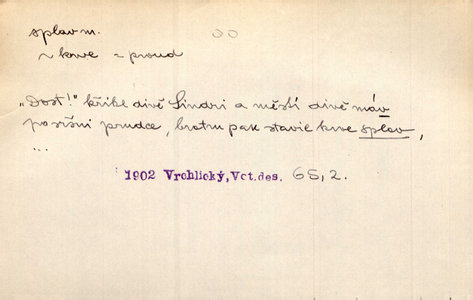 splav m.
~ krve = proud
„Dost!" křikl divě Sindri a městí divě máv
po sršni prudce, bratru pak stavil krve splav,
...
1902 Vrchlický, Vct.des. 65, 2.